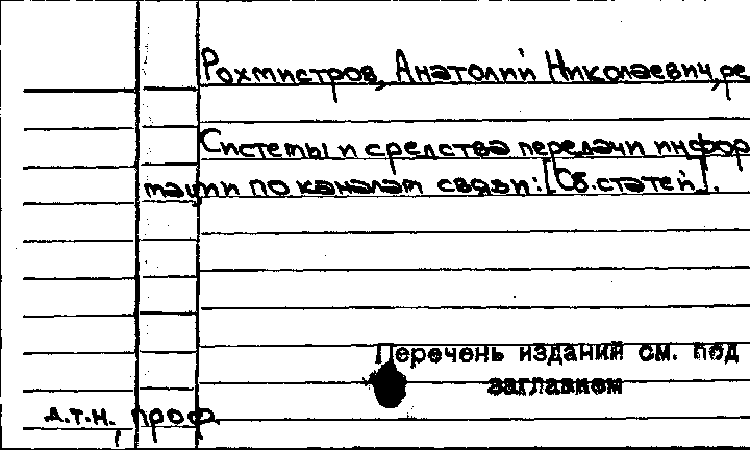 Рохмистров, Анатолий Николаевич, ре
Системы и средства передачи инфор
мации по каналам связи: [Сб. статей].
Перечень изданий см. под
заглавием
д.т.н., проф.